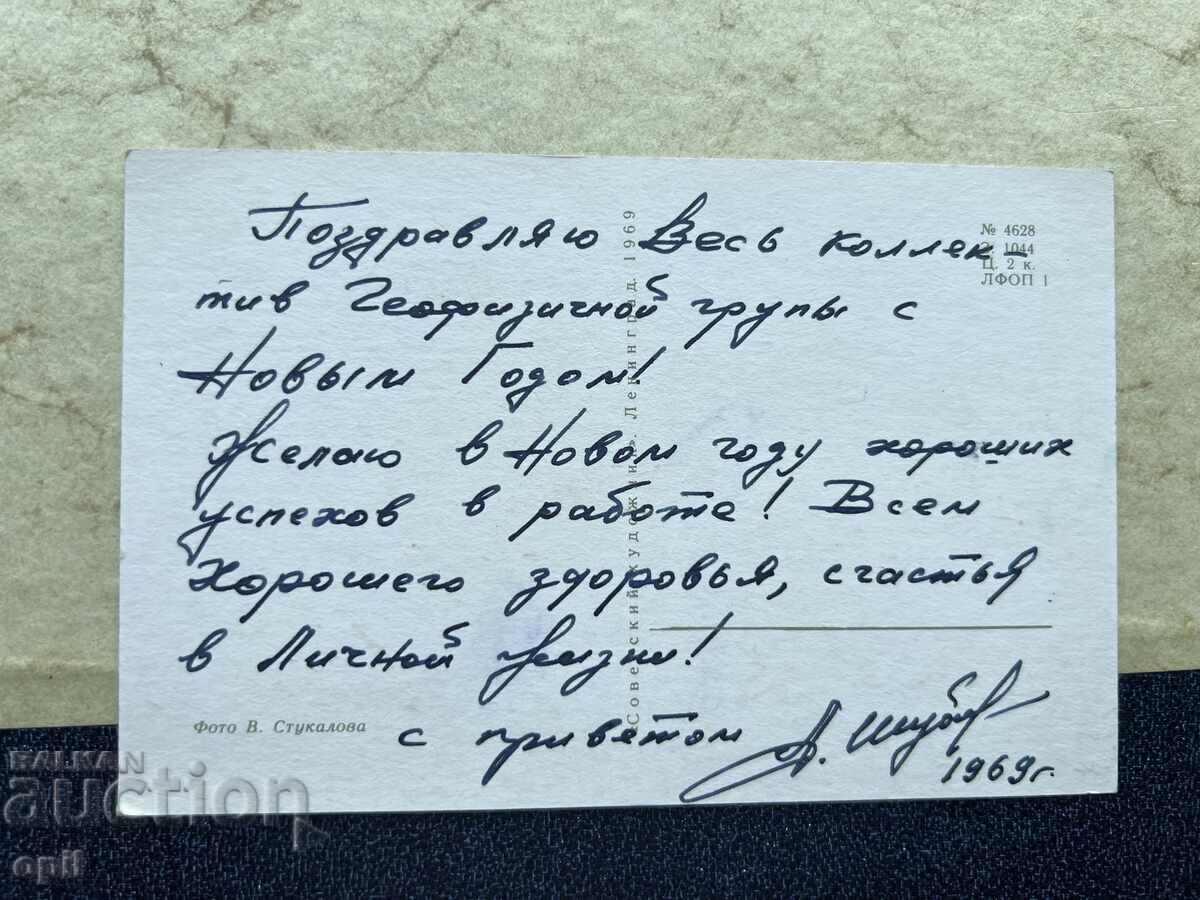 Поздравляю Весь коллек-
тив Геофизичной групы с
Новым Годом!
Желаю в Новом году хороших
успехов в работе! Всем
Хорошего здоровья, счастья
в Личной жизни!
с приветом
1969г.
№ 4628
1044
Ц. 2 к.
ЛФОП 1
Советский художник». Ленинград. 1969
Фото В. Стукалова
BALKAN
auction
opil